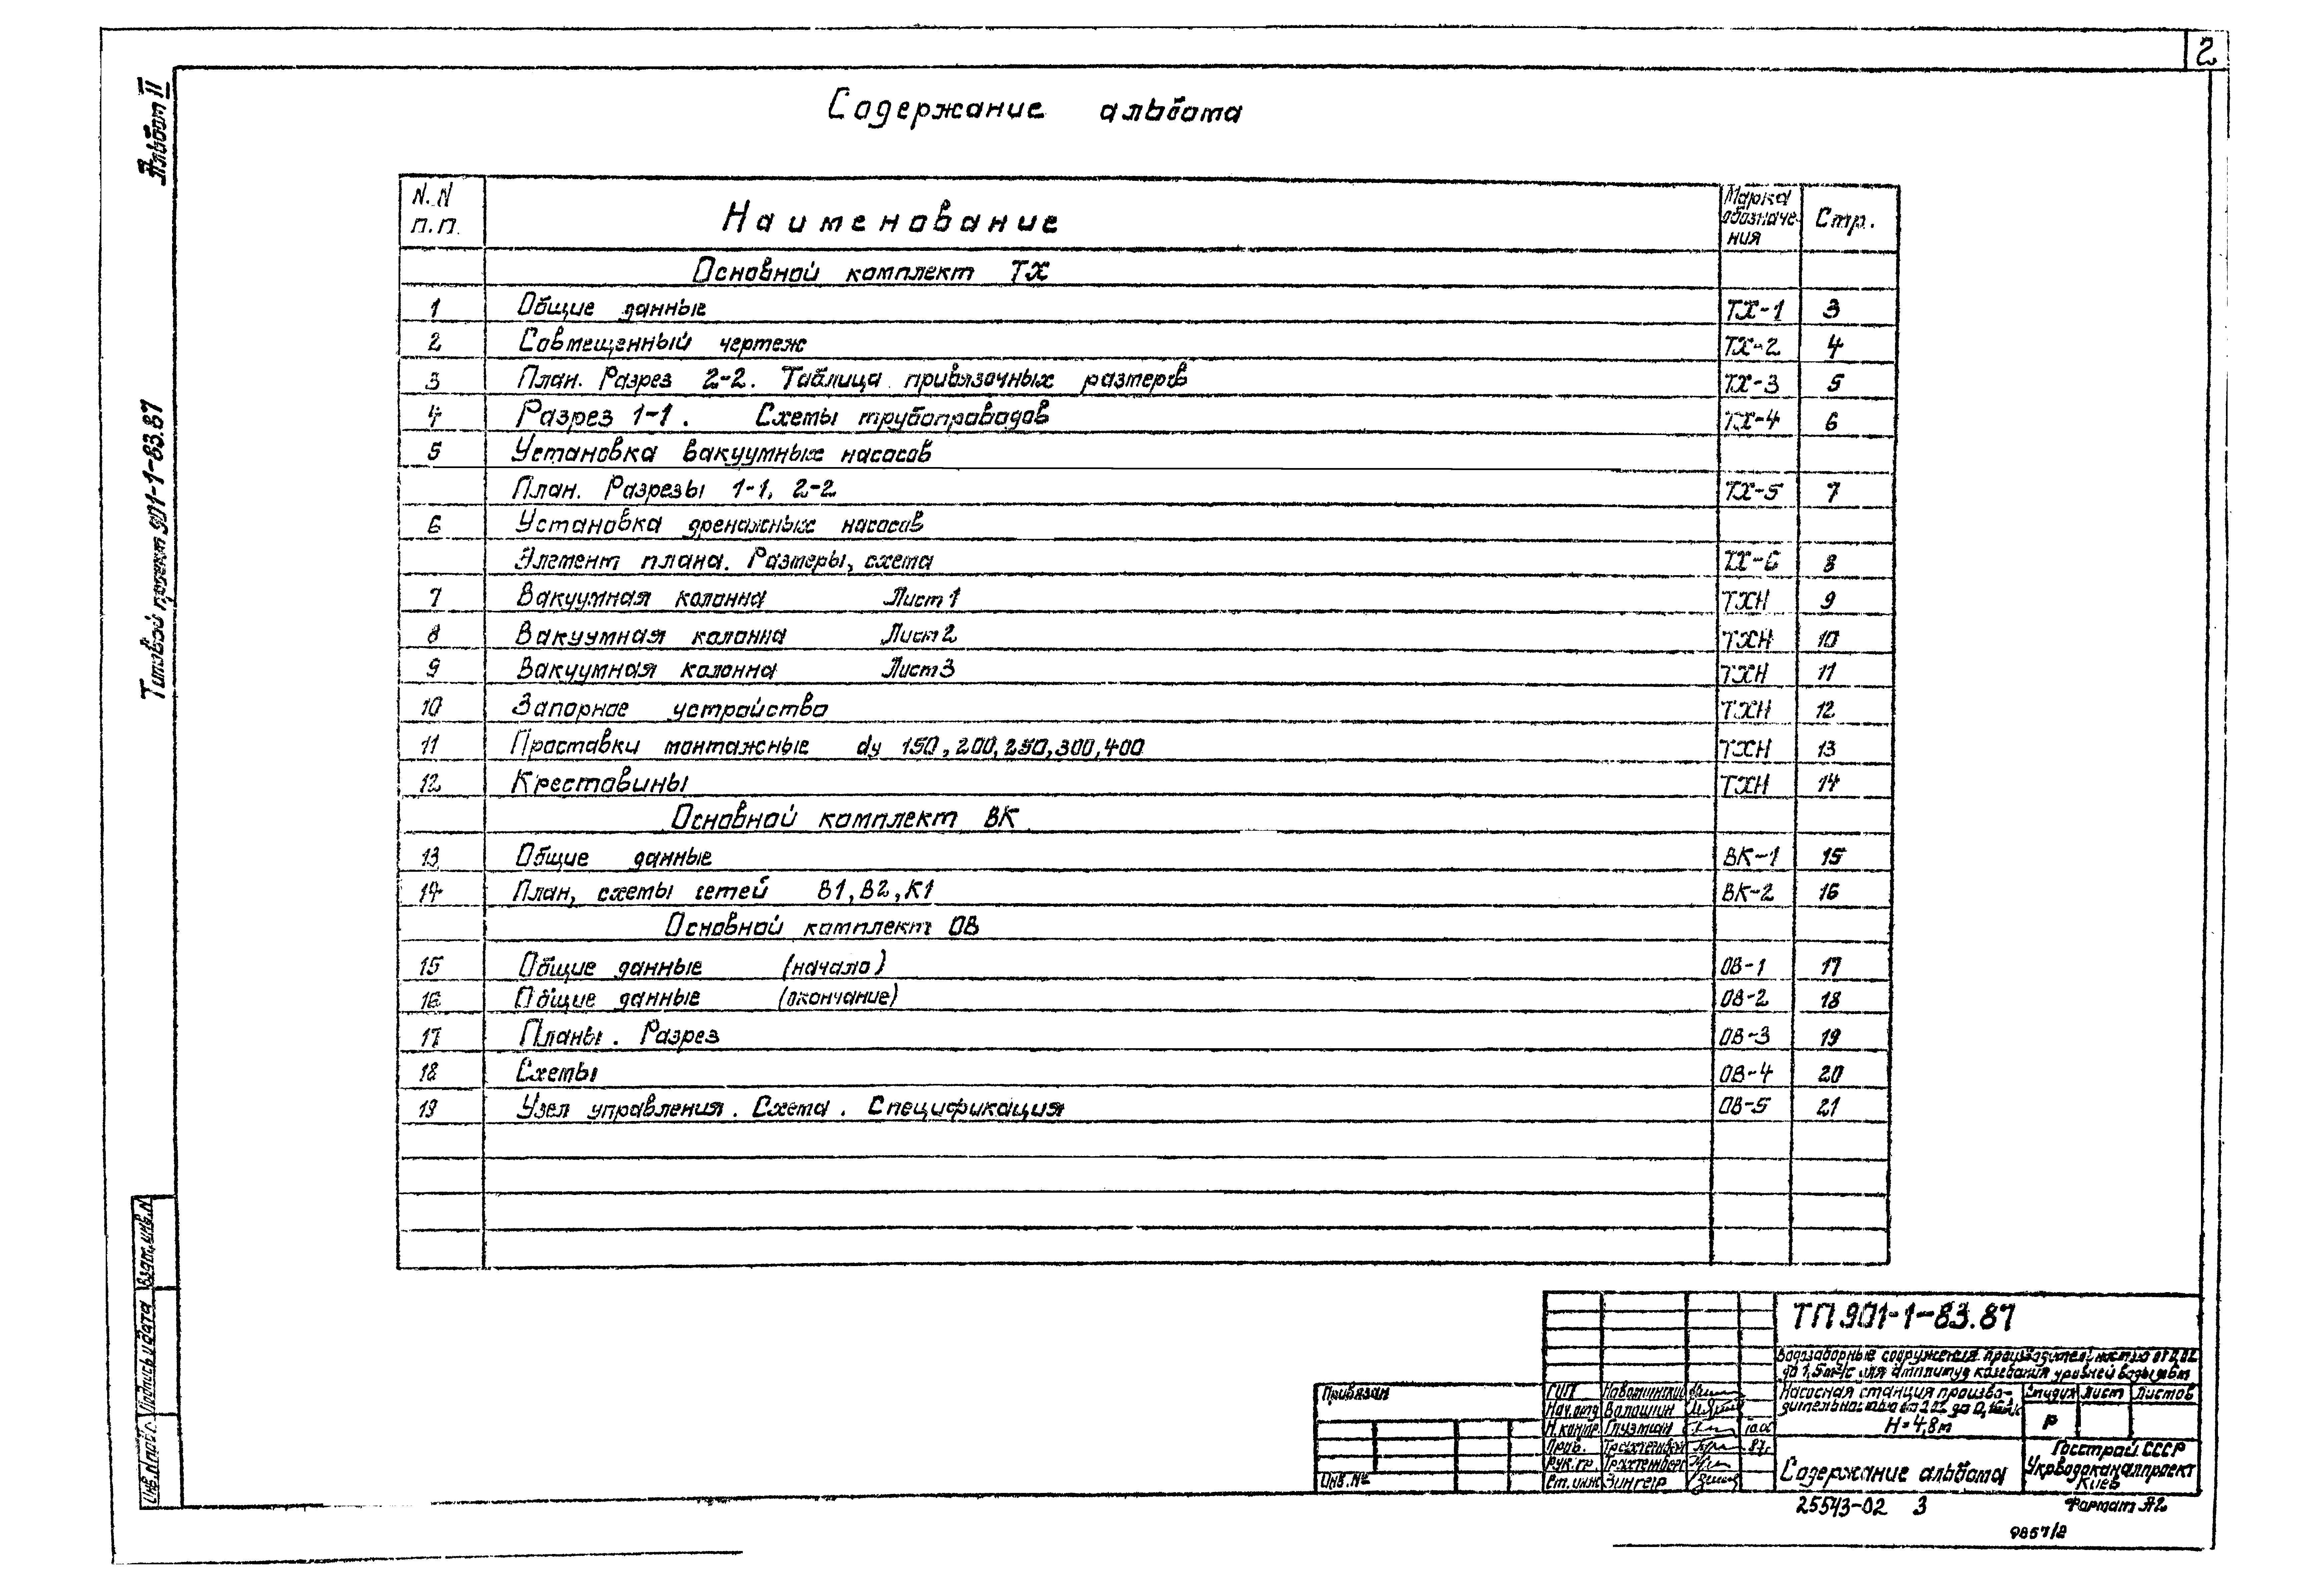 2
Альбом II
Типовой проект 901-1-83.87
Содержание альбома
N.N п.п. Наименование Марка обозначения Стр.
Основной комплект ТХ
1 Общие данные ТХ-1 3
2 Совмещенный чертеж ТХ-2 4
3 План. Разрез 2-2. Таблица привязочных размеров ТХ-3 5
4 Разрез 1-1. Схемы трубопроводов ТХ-4 6
5 Установка вакуумных насосов
План. Разрезы 1-1, 2-2 ТХ-5 7
6 Установка дренажных насосов
Элемент плана. Размеры, схема ТХ-6 8
7 Вакуумная колонна Лист 1 ТХН 9
8 Вакуумная колонна Лист 2 ТХН 10
9 Вакуумная колонна Лист 3 ТХН 11
10 Запорное устройство ТХН 12
11 Проставки монтажные dу 150, 200, 250, 300, 400 ТХН 13
12 Крестовины ТХН 14
Основной комплект ВК
13 Общие данные ВК-1 15
14 План, схемы сетей В1, В2, К1 ВК-2 16
Основной комплект ОВ
15 Общие данные (начало) ОВ-1 17
16 Общие данные (окончание) ОВ-2 18
17 Планы. Разрез ОВ-3 19
18 Схемы ОВ-4 20
19 Узел управления. Схема. Спецификация ОВ-5 21
Взам. инв. N
Подпись и дата
Инв. N подл.
Привязан
Инв. №
ТП 901-1-83.87
Водозаборные сооружения производительностью от 0,02
до 1,5 м³/с для амплитуд колебания уровней воды 6м
ГИП
Нач. отд Волошин
Н. контр. Глузман
Пров. Трахтенберг 87г
Рук. гр. Трахтенберг
Ст. инж Зингер
Насосная станция произво-
дительностью от 0,02 до
H=4,8м
Стадия Лист Листов
Р
Содержание альбома
Госстрой СССР
Укрводоканалпроект
Киев
25543-02 3
Формат А2
9857/2